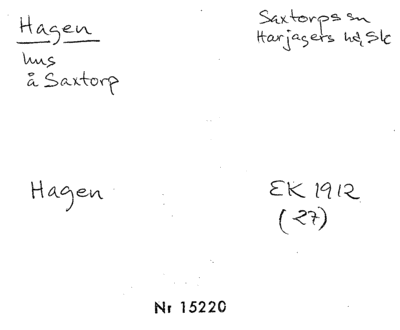 Hagen
Saxtorps sn
Harjagers hd, Sk
hus
å Saxtorp
Hagen
EK 1912
(27)
Nr 15220